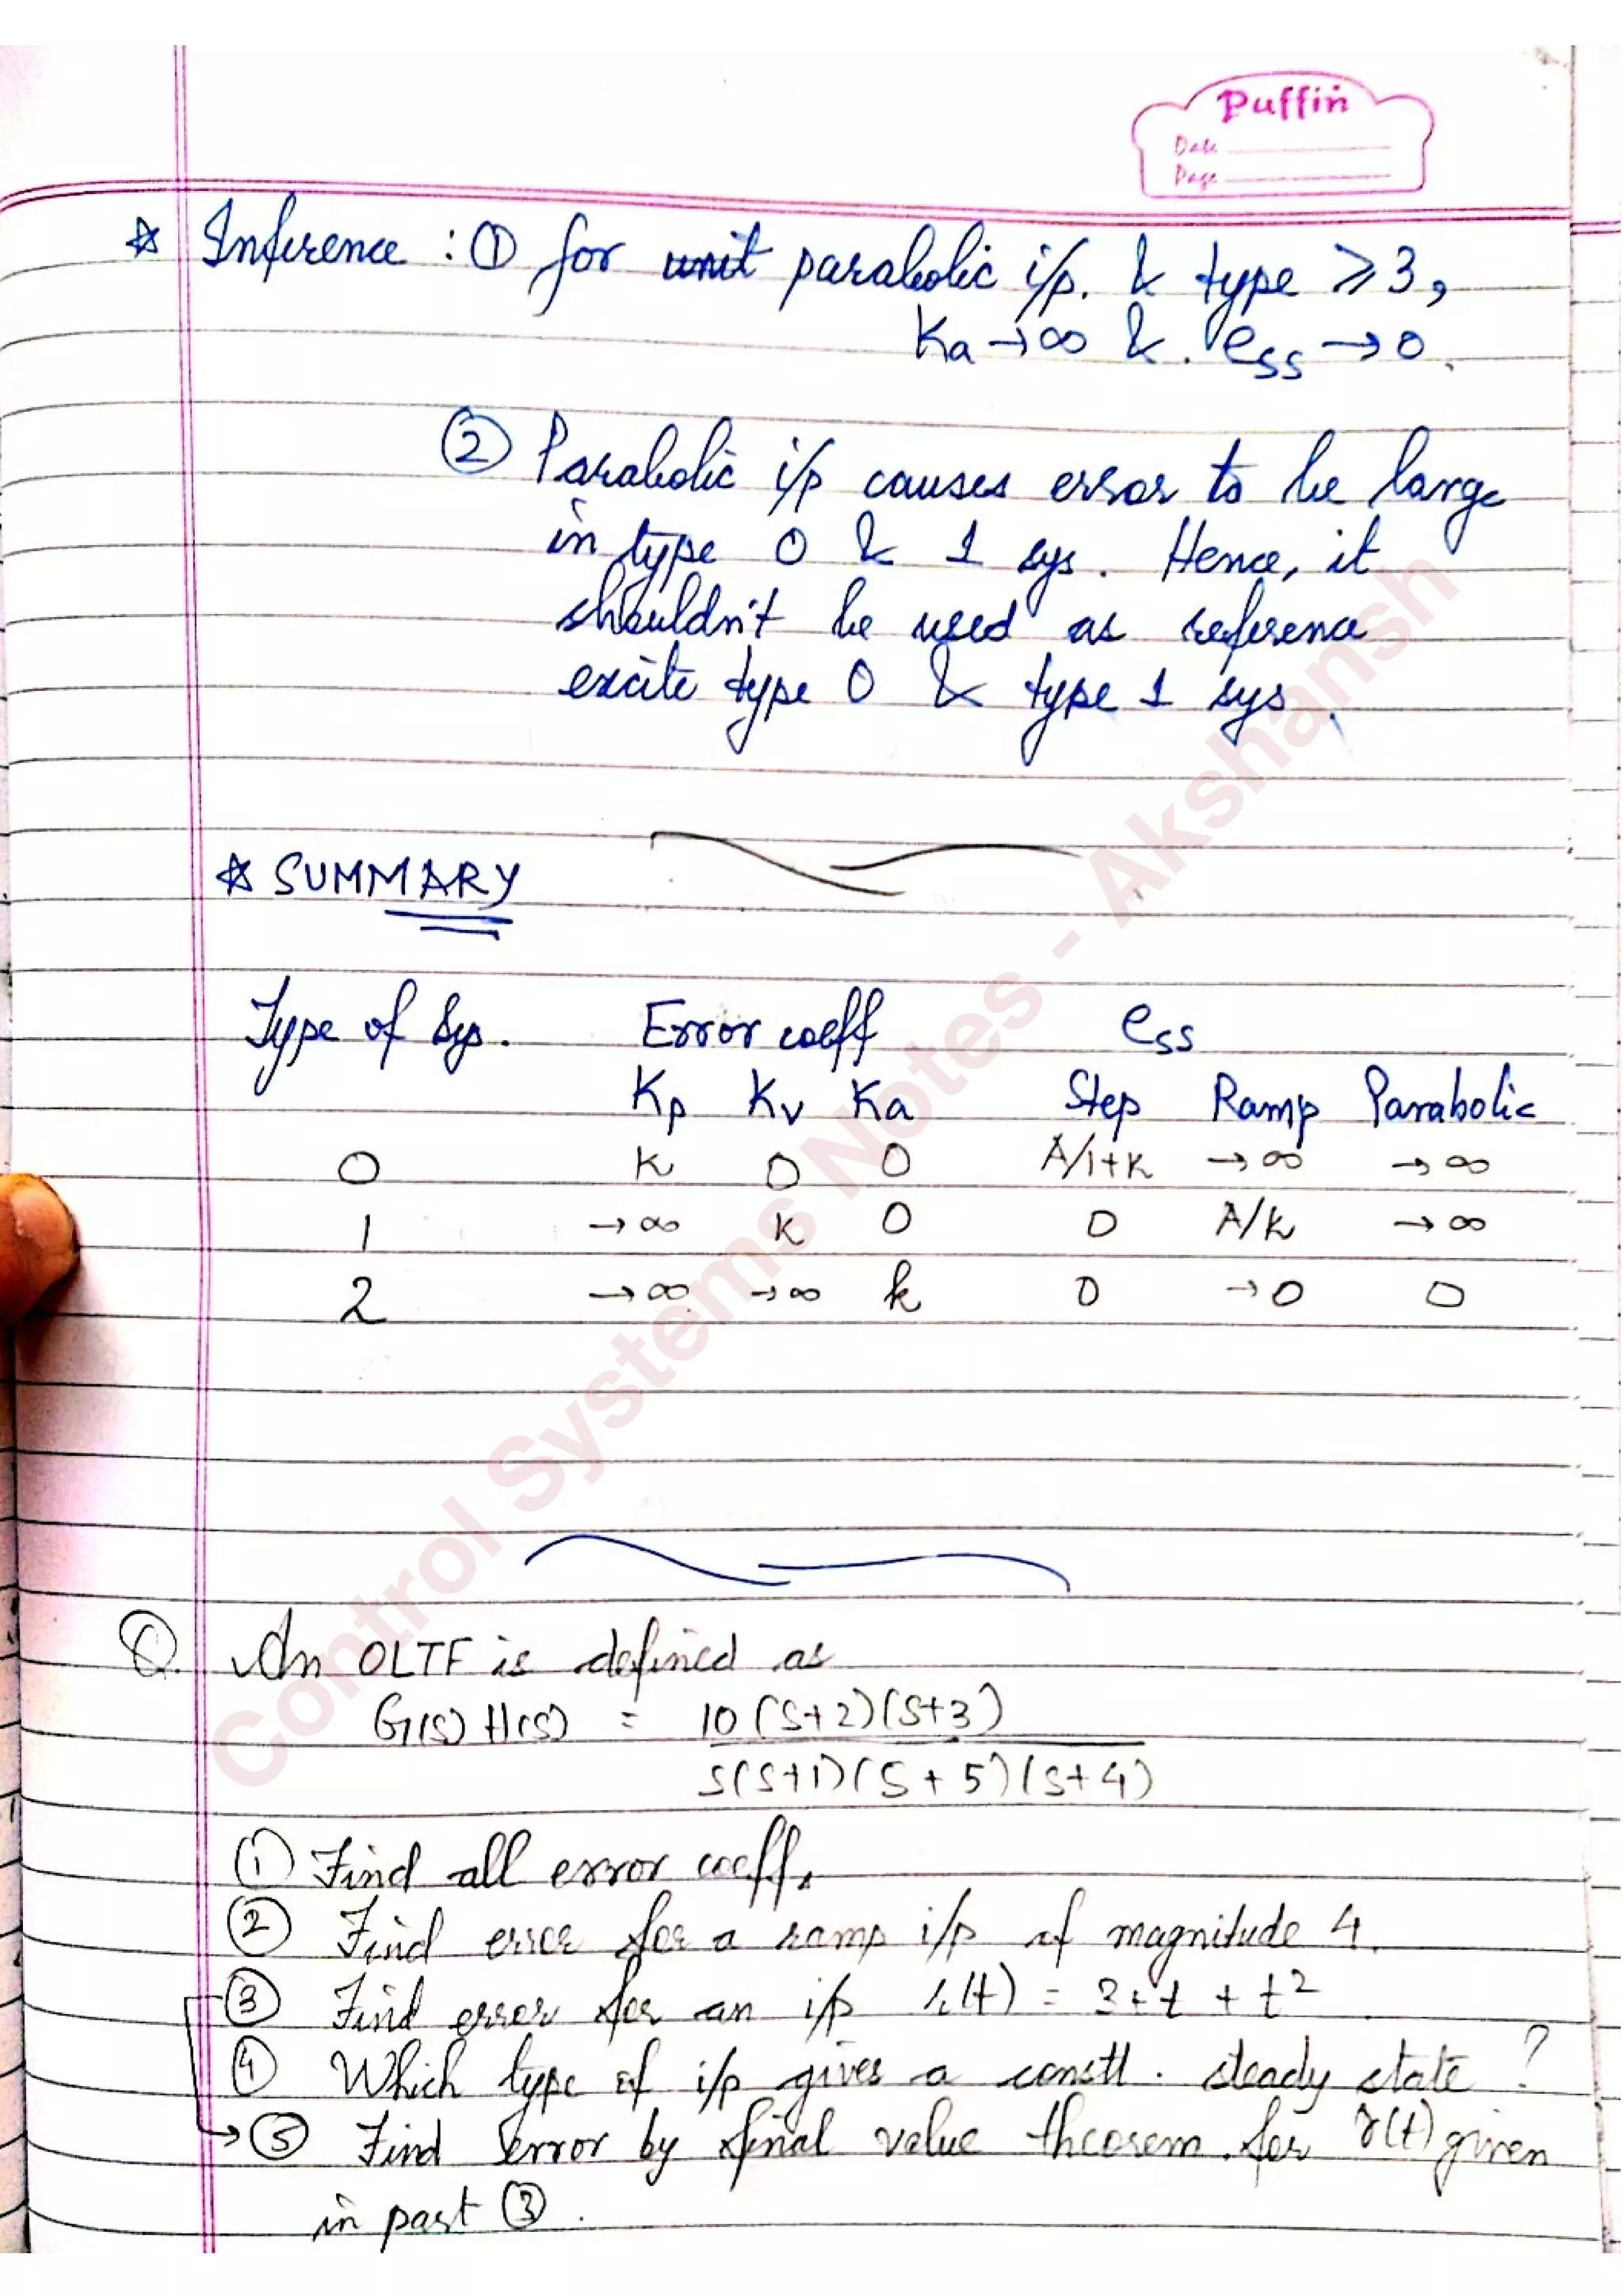 Puffin
Date
Page
☆ Inference : ① for unit parabolic i/p. & type ⩾ 3,
Ka → ∞ & ess → 0.
② Parabolic i/p causes error to be large
in type 0 & 1 sys. Hence, it
shouldn't be used as reference
excite type 0 & type 1 sys.
☆ SUMMARY
Type of Sys. Error coeff ess
Kp Kv Ka Step Ramp Parabolic
0 K 0 0 A/1+K → ∞ → ∞
1 → ∞ K 0 0 A/k → ∞
2 → ∞ → ∞ k 0 → 0 0
Q. An OLTF is defined as
G(s) H(s) = 10 (s+2)(s+3)
s(s+1)(s+5)(s+4)
① Find all error coeff.
② Find error for a ramp i/p of magnitude 4.
③ Find error for an i/p r(t) = 3+t + t²
④ Which type of i/p gives a constt. steady state ?
→ ⑤ Find error by final value theorem for r(t) given
in part ③.
Control Systems Notes - Akshansh